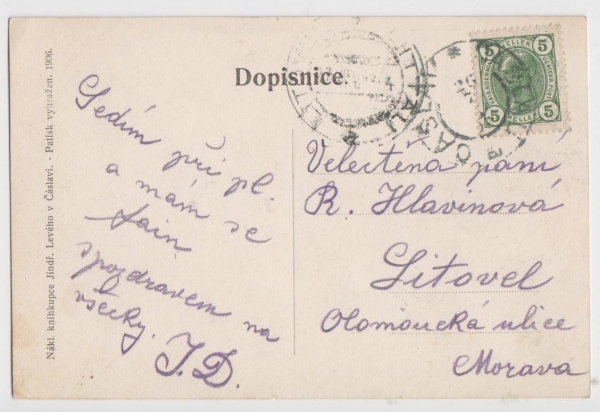 Dopisnice.
Sedím při pl.
a mám se
fain
spozdravem na
všecky. J. D.
Velectěna paní
R. Hlavinová
Litovel
Olomoucká ulice
Morava
Nákl. knihkupce Jindř. Levého v Čáslavi. - Patisk vyhražen. 1906.
5 HELLER 5
ČÁSLAV